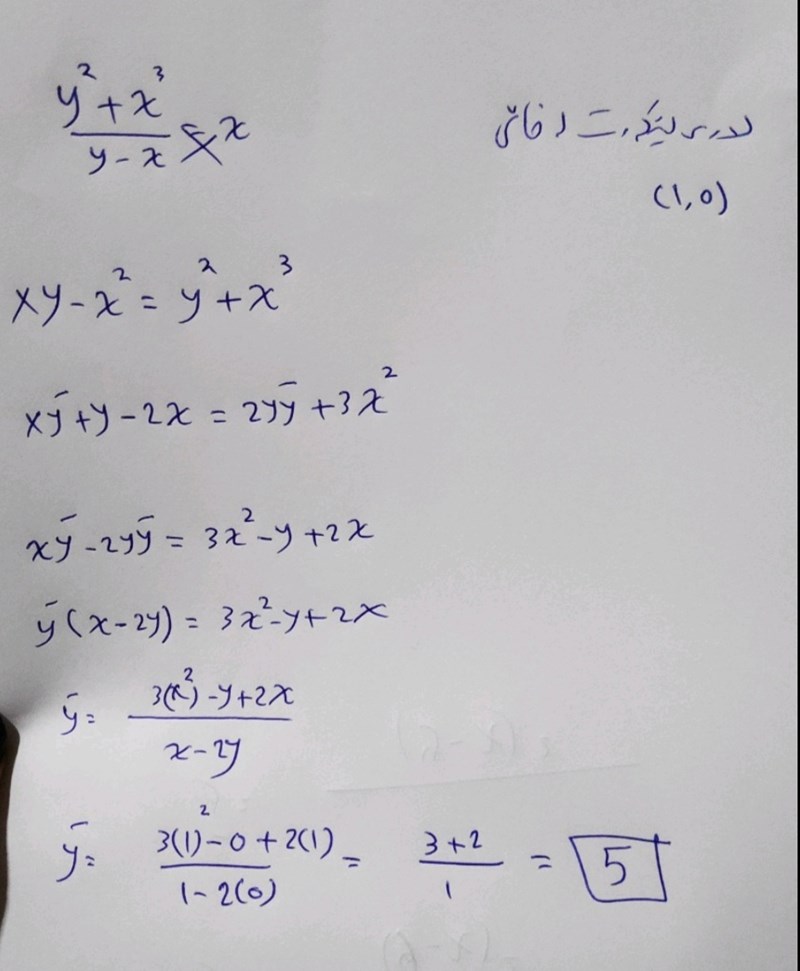 (y² + x³)/(y - x) x
(1,0)
xy - x² = y² + x³
xȳ + y - 2x = 2yȳ + 3x²
xȳ - 2yȳ = 3x² - y + 2x
ȳ(x - 2y) = 3x² - y + 2x
ȳ = (3(x²) - y + 2x)/(x - 2y)
ȳ = (3(1)² - 0 + 2(1))/(1 - 2(0)) = (3+2)/1 = 5